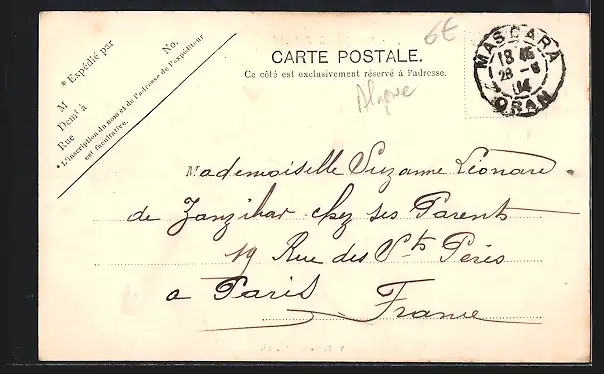 6€
CARTE POSTALE.
Ce côté est exclusivement réservé à l'adresse.
Algerie
MASCARA
18 45
28 -8
04
ORAN
* Expédié par
M
Demt à
Rue No.
* L'inscription du nom et de l'adresse de l'expéditeur
est facultative.
Mademoiselle Suzanne Léonard
de Zanzibar chez ses Parents
19 Rue des Sts Pères
a Paris France